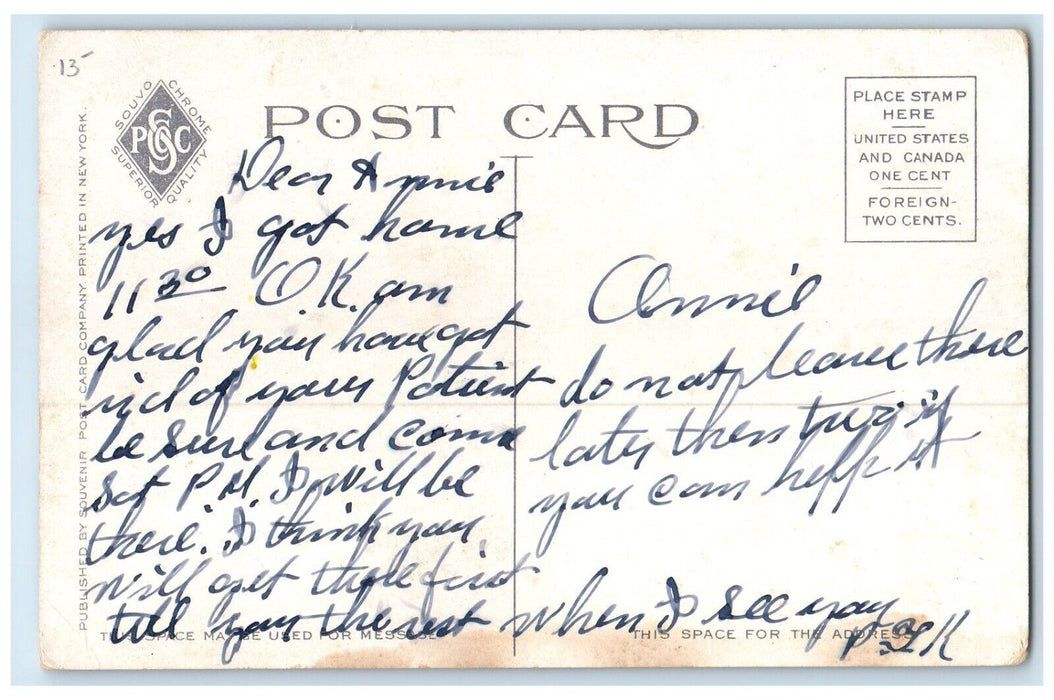 13
SOUVO CHROME
PSC
SUPERIOR QUALITY
POST CARD
PLACE STAMP
HERE
UNITED STATES
AND CANADA
ONE CENT
FOREIGN-
TWO CENTS.
PUBLISHED BY SOUVENIR POST CARD COMPANY. PRINTED IN NEW YORK.
Dear Annie
yes I got home
11 30 OK. am
glad you have got
rid of your Patient
be Sure and come
Sat P.M. I will be
there. I think you
will get there first
tell you the rest when I see you
Annie
do not leave there
later then two if
you can help it
P.
K
THIS SPACE MAY BE USED FOR MESSAGE
THIS SPACE FOR THE ADDRESS